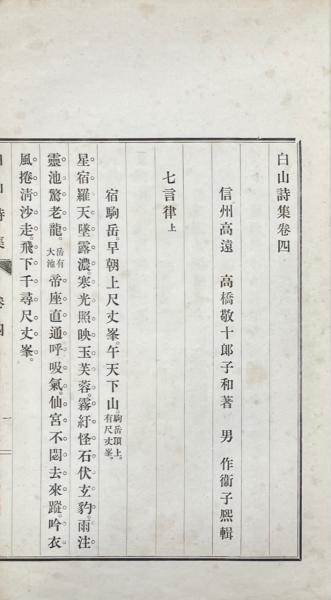 白山詩集卷四
信州高遠　高橋敬十郎子和著　男　作衞子熙輯
七言律上
宿駒岳早朝上尺丈峯。午天下山。駒岳頂上。有尺丈峯。
星宿羅天墜露濃。寒光照映玉芙蓉。霧紆怪石伏玄豹。雨注
靈池驚老龍。岳有大池帝座直通呼吸氣。仙宮不閟去來蹤。吟衣
風捲淸沙走。飛下千尋尺丈峯。